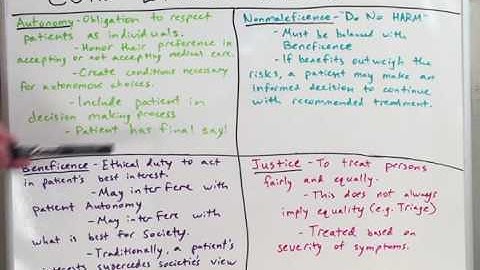 Autonomy - Obligation to respect
patients as individuals.
- Honor their preference in
accepting or not accepting medical care.
- Create conditions necessary
for autonomous choices.
- Include patient in
decision making process
- Patient has final say!
Nonmaleficence - "Do No HARM"
- Must be balanced with
Beneficence
- If benefits outweigh the
risks, a patient may make an
informed decision to continue
with recommended treatment.
Beneficence - Ethical duty to act
in patient's best interest.
- May interfere with
patient Autonomy
- May interfere with
what is best for Society.
- Traditionally, a patient's
interests supercedes societies view
Justice - To treat persons
fairly and equally.
- This does not always
imply equality (e.g. Triage)
- Treated based on
severity of symptoms.